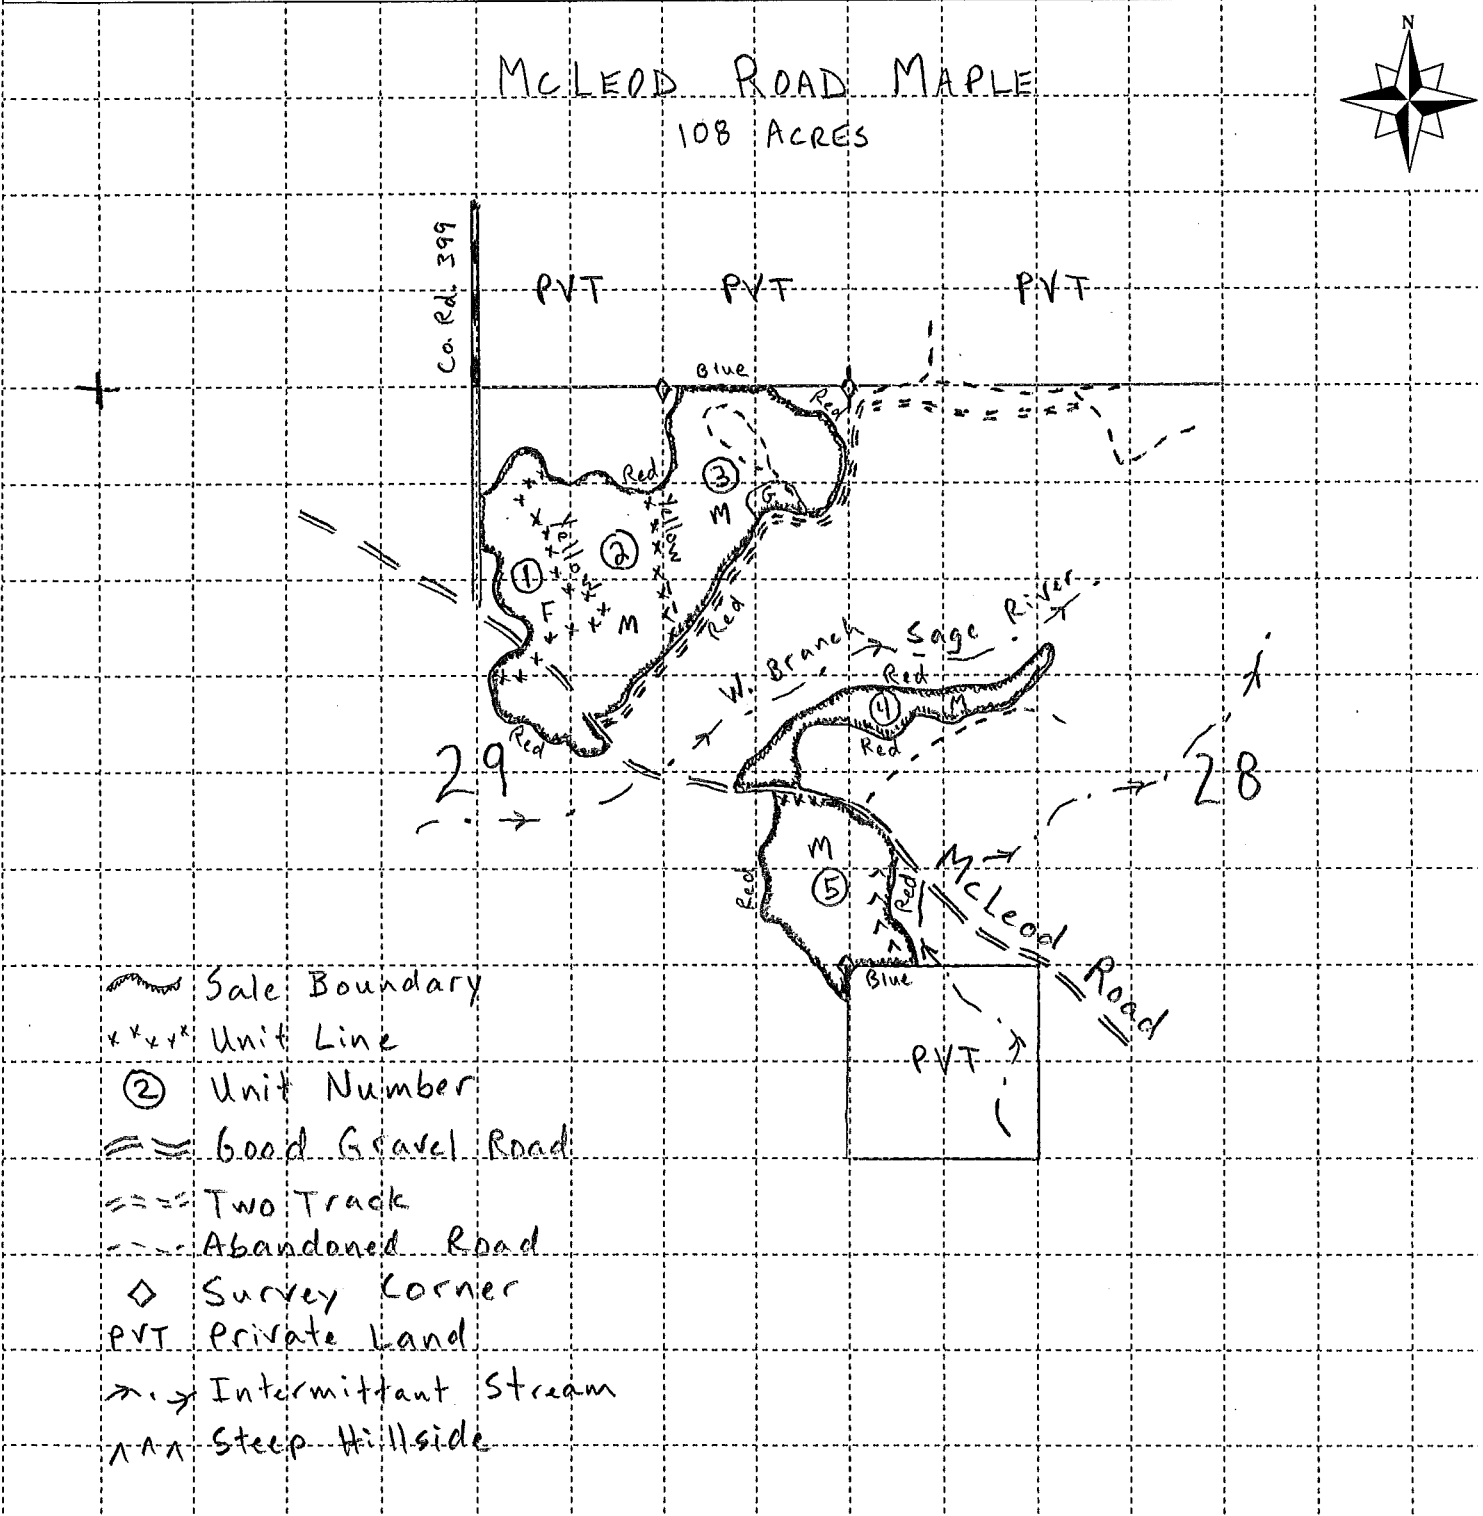 N
McLEOD ROAD MAPLE
108 ACRES
Co. Rd. 399
PVT PVT PVT
Blue
Red
Red
3
G
M
Yellow
Yellow
2
1
F
M
Red
W. Branch Sage River
Red
4
M
Red
Red
29
28
M
5
Red
Red
McLeod Road
Blue
PVT
Sale Boundary
x x x x x Unit Line
2 Unit Number
Good Gravel Road
Two Track
Abandoned Road
Survey Corner
PVT Private Land
Intermittant Stream
Steep Hillside